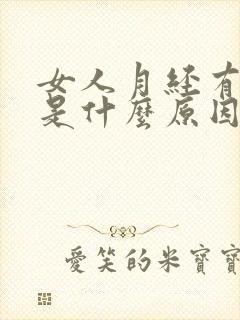 女人月経有
是什麼原因
愛笑的米寶寶